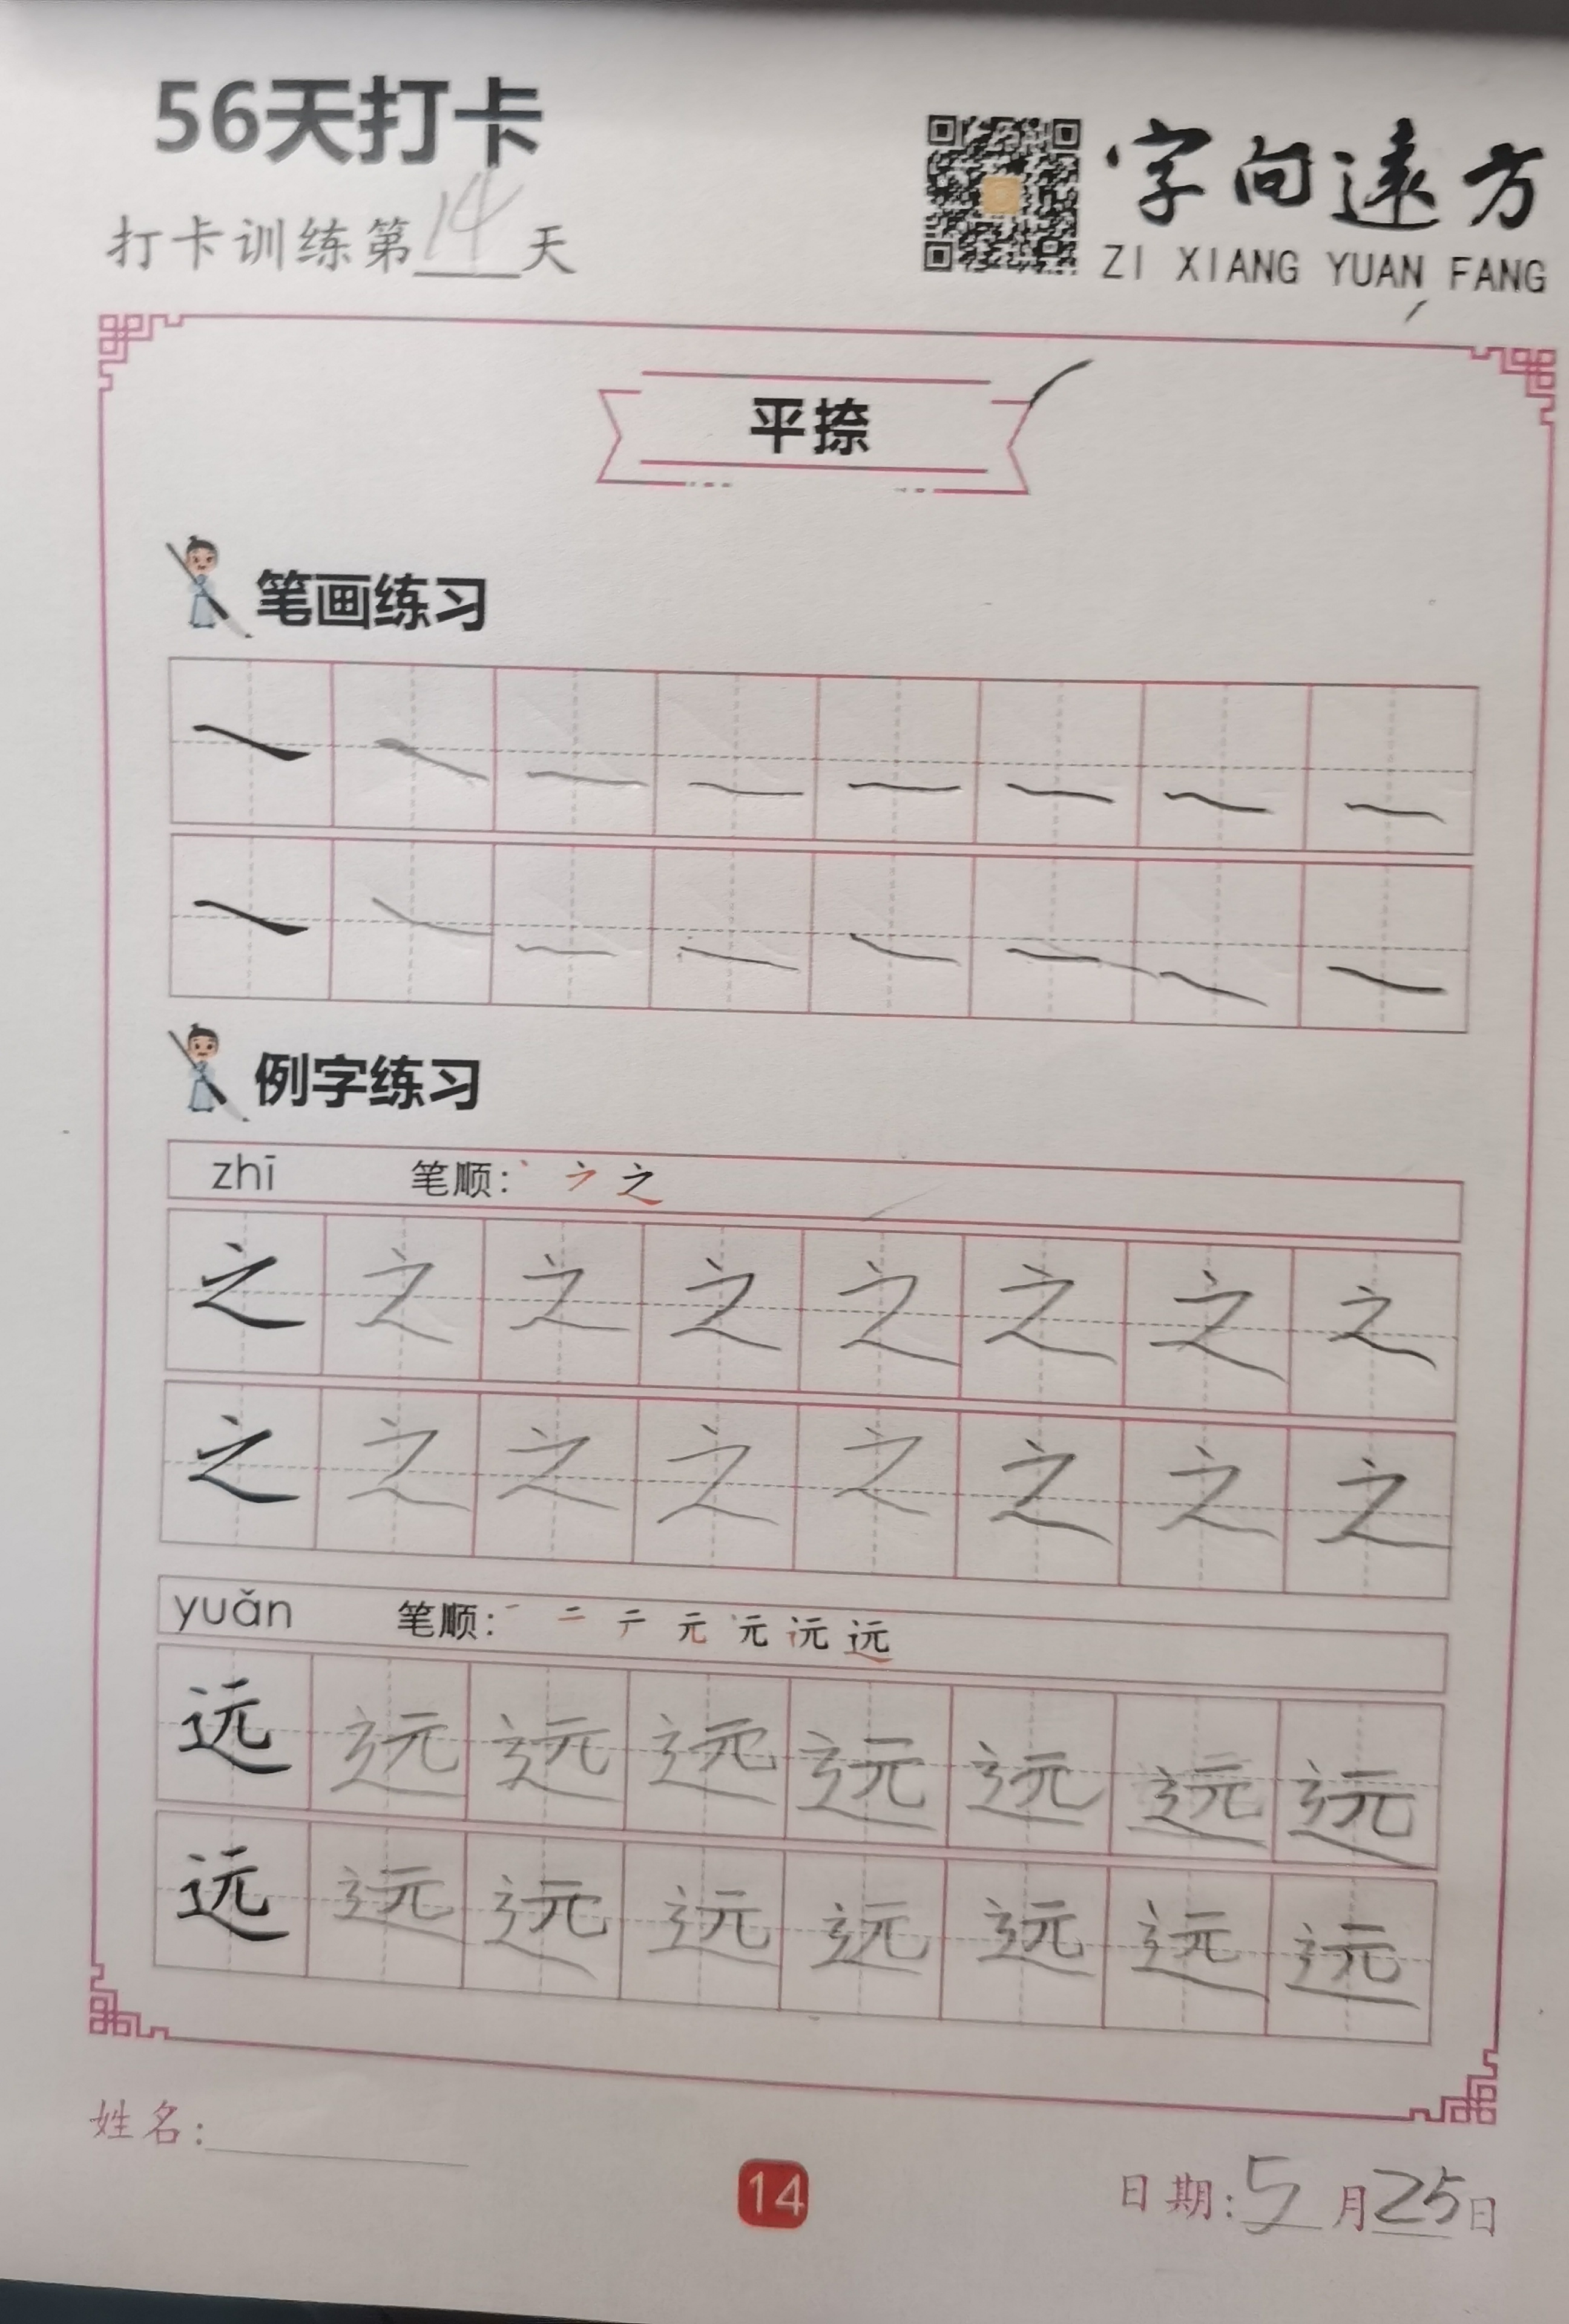 56天打卡
打卡训练第14天
字向遠方
ZI XIANG YUAN FANG
平捺
笔画练习
例字练习
zhī 笔顺: 丶 ㇇ 之
之 之 之 之 之 之 之 之
之 之 之 之 之 之 之 之
yuǎn 笔顺: 一 二 テ 元 元 远 远
远 远 远 远 远 远 远 远
远 远 远 远 远 远 远 远
姓名:
14
日期:5月25日